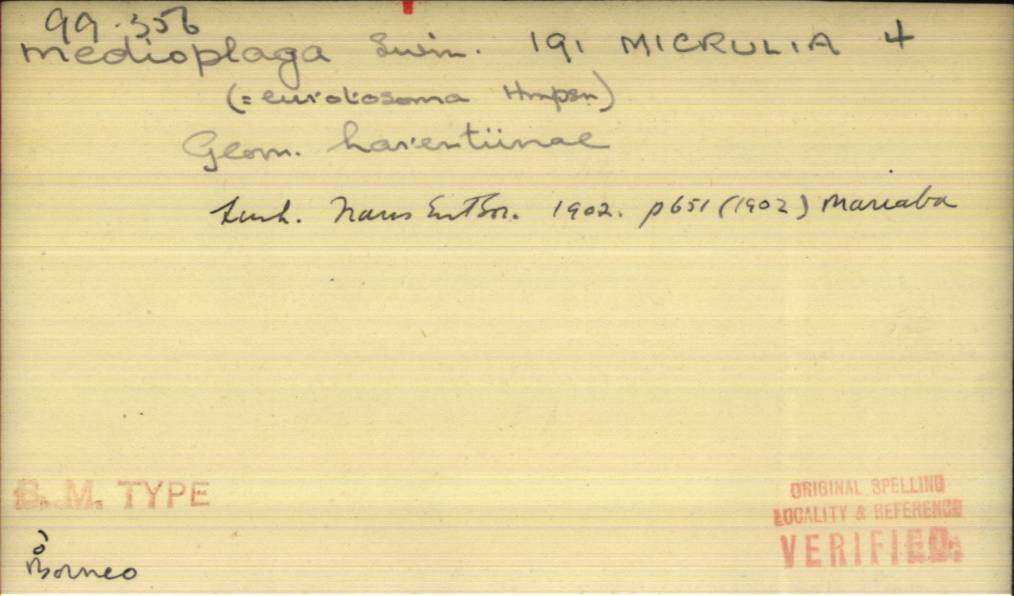 99.356
medioplaga Swin. 191 MICRULIA 4
(= eurotosoma Hmpsn)
Geom. Larentiinae
Swinh. Trans Ent Soc. 1902. p651 (1902) Mariaba
B. M. TYPE
Borneo
ORIGINAL SPELLING
LOCALITY & REFERENCE
VERIFIED.